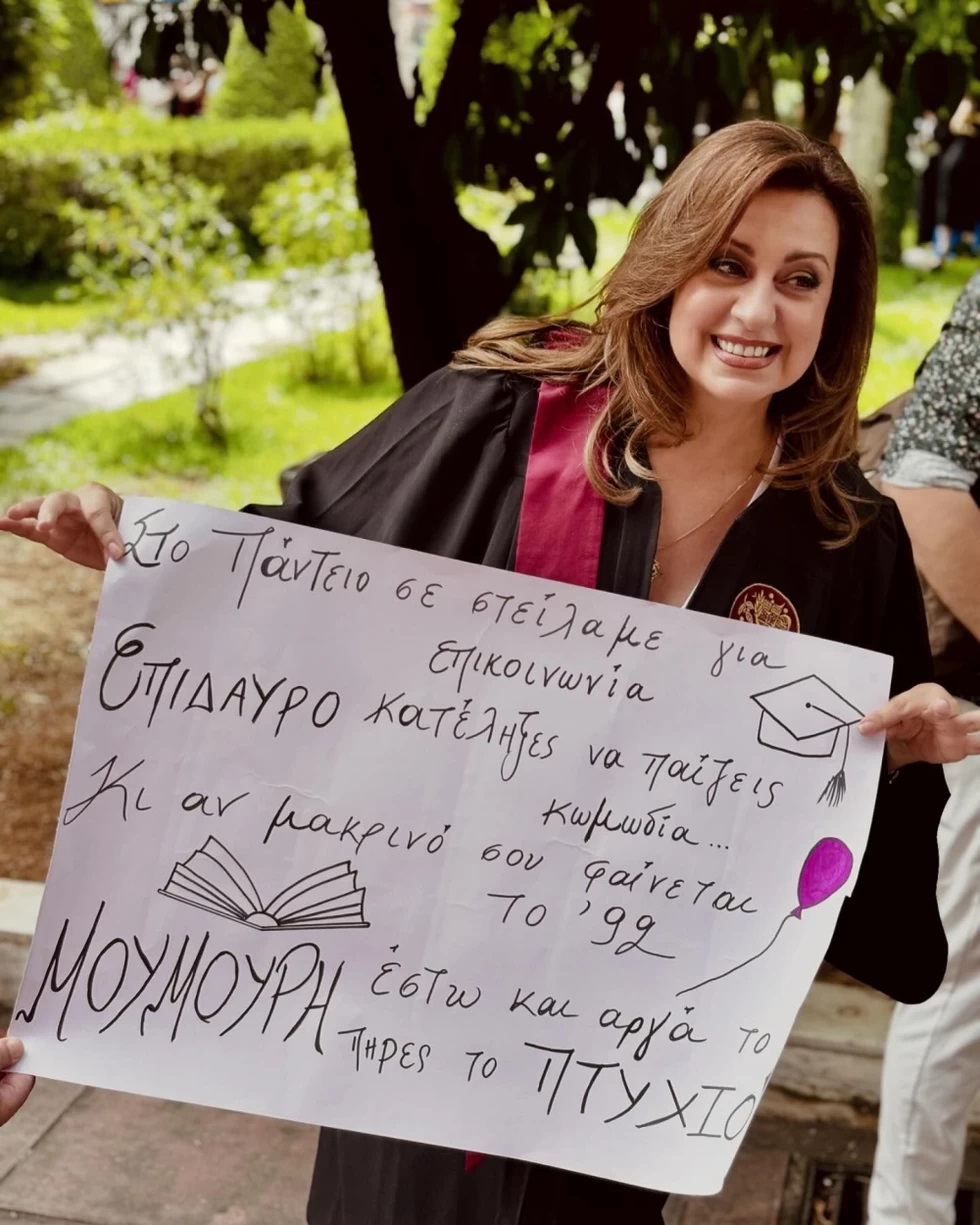 Στο Πάντειο σε στείλαμε για
επικοινωνία
ΕΠΙΔΑΥΡΟ κατέληξες να παίξεις
κωμωδία...
Κι αν μακρινό σου φαίνεται
το '92
ΜΟΥΜΟΥΡΗ έστω και αργά το
ΠΗΡΕΣ το ΠΤΥΧΙΟ